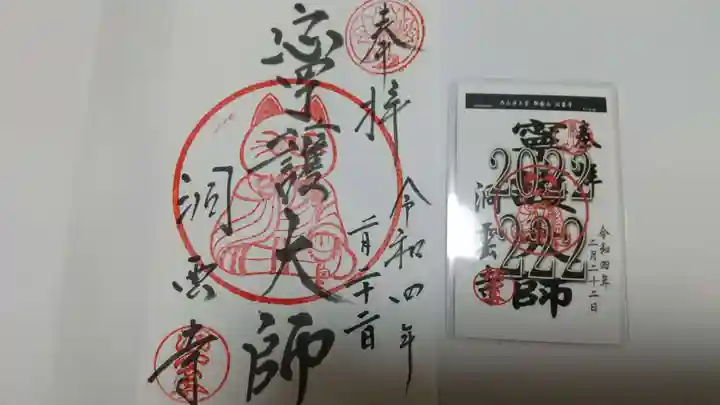 奉拝
令和四年
二月二十二日
寧護大師
洞雲寺
奉拝
2022
222
寧護大師
洞雲寺
令和四年
二月二十二日